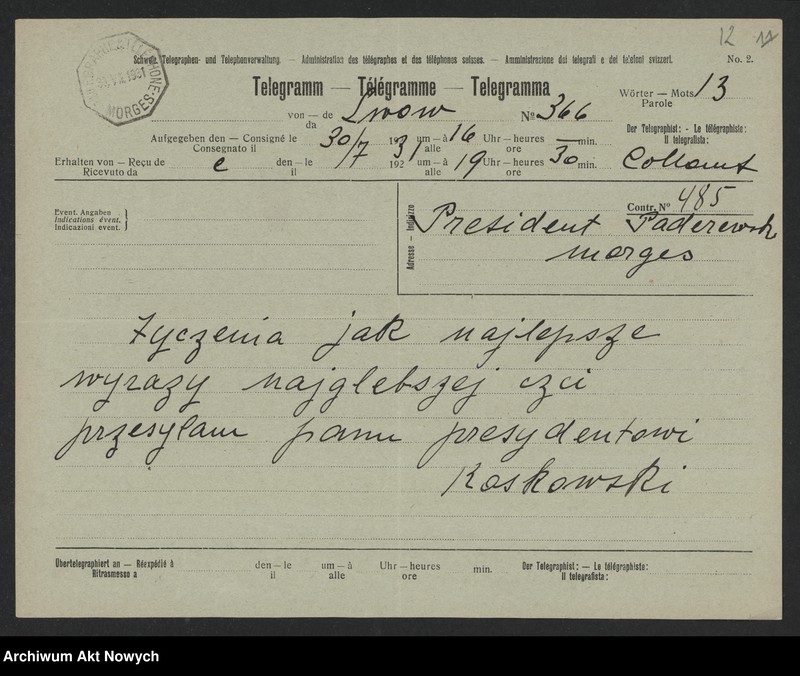 12 11
TÉLÉPHONE
30.VII.1931
MORGES
Schweiz. Telegraphen- und Telephonverwaltung. — Administration des télégraphes et des téléphones suisses. — Amministrazione dei telegrafi e dei telefoni svizzeri. No. 2.
Telegramm — Télégramme — Telegramma
Wörter — Mots 13
Parole
von — de Lwow No 366
da
Der Telegraphist: - Le télégraphiste:
Il telegrafista:
Aufgegeben den — Consigné le 30/7 1931 um — à 16 Uhr — heures — min.
Consegnato il alle ore
Erhalten von — Reçu de e den — le 192 um — à 19 Uhr — heures 30 min.
Ricevuto da il alle ore
Event. Angaben
Indications évent.
Indicazioni event.
Adresse — Indirizzo
Contr. No 485
President Paderewski
Morges
życzenia jak najlepsze
wyrazy najglebszej czci
przesylam panu presydentowi
Koskowski
Übertelegraphiert an — Réexpédié à den — le um — à Uhr — heures min. Der Telegraphist: — Le télégraphiste:
Ritrasmesso a il alle ore Il telegrafista:
Archiwum Akt Nowych